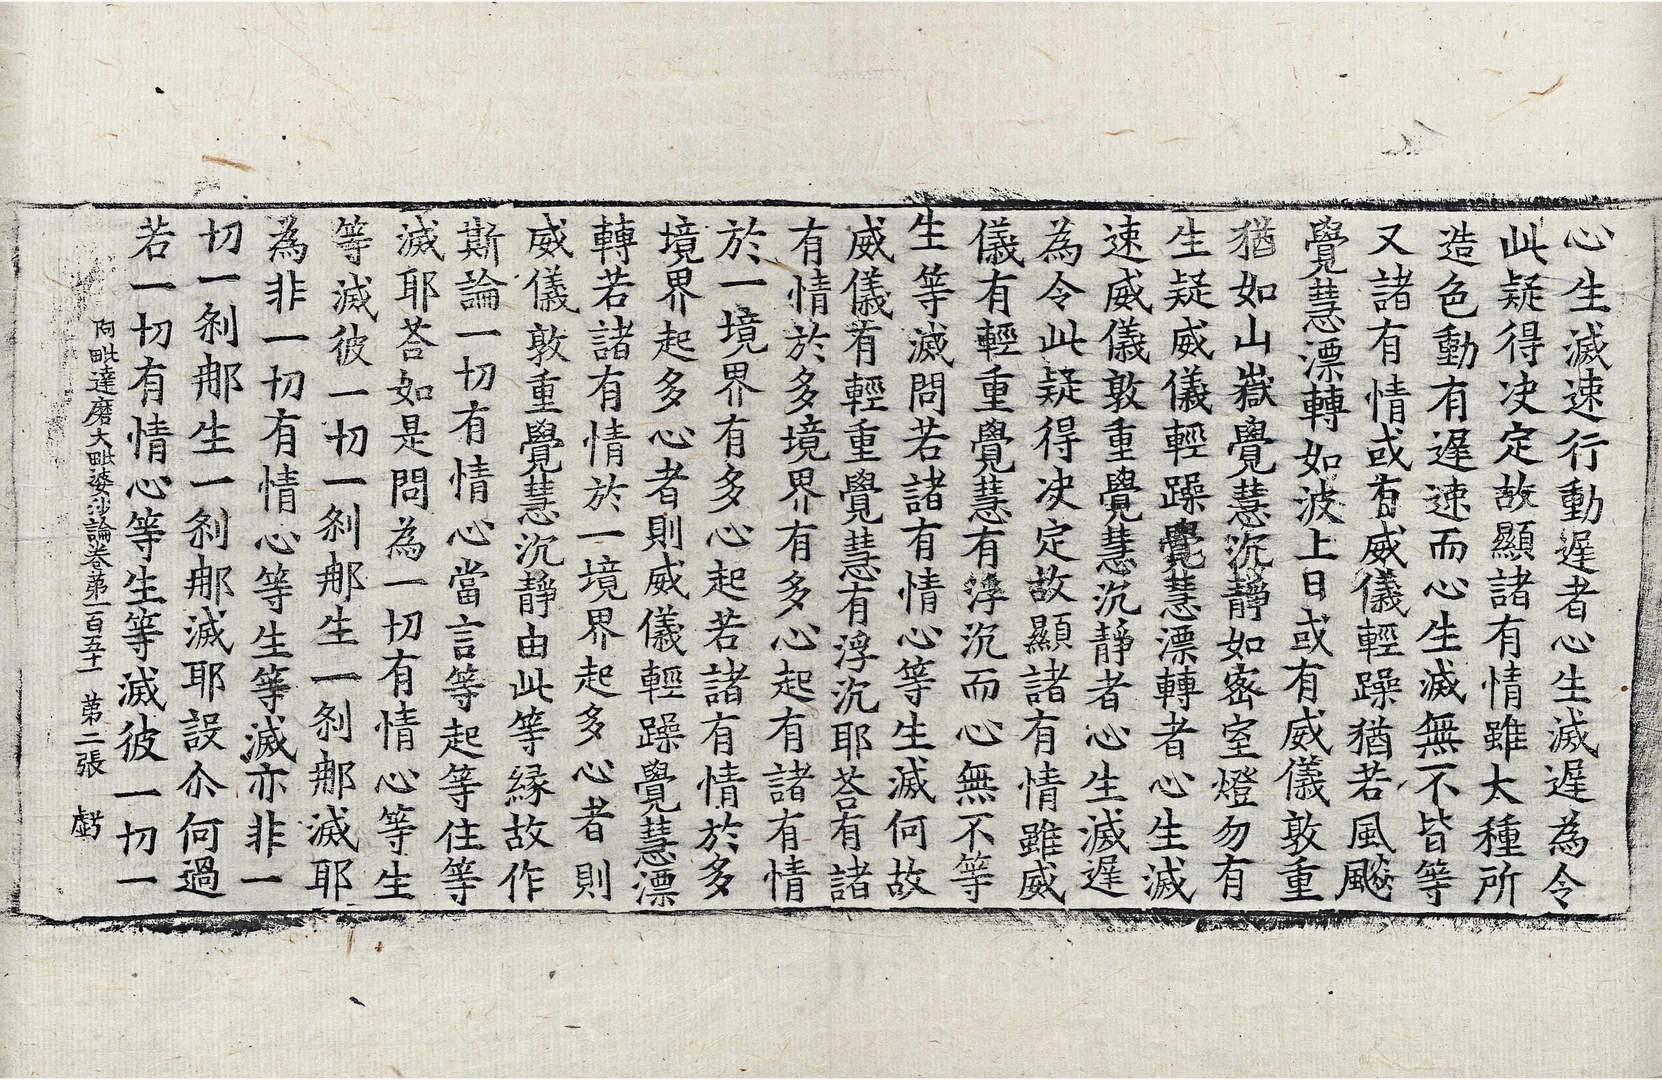 心生滅速行動遅者心生滅遅為令
此疑得決定故顯諸有情雖大種所
造色動有遅速而心生滅無不皆等
又諸有情或有威儀輕躁猶若風飈
覺慧漂轉如波上日或有威儀敦重
猶如山嶽覺慧沉靜如密室燈勿有
生疑威儀輕躁覺慧漂轉者心生滅
速威儀敦重覺慧沉靜者心生滅遅
為令此疑得決定故顯諸有情雖威
儀有輕重覺慧有浮沉而心無不等
生等滅問若諸有情心等生滅何故
威儀有輕重覺慧有浮沉耶荅有諸
有情於多境界有多心起有諸有情
於一境界有多心起若諸有情於多
境界起多心者則威儀輕躁覺慧漂
轉若諸有情於一境界起多心者則
威儀敦重覺慧沉靜由此等縁故作
斯論一切有情心當言等起等住等
滅耶荅如是問為一切有情心等生
等滅彼一切一刹那生一刹那滅耶
為非一切有情心等生等滅亦非一
切一刹那生一刹那滅耶設尒何過
若一切有情心等生等滅彼一切一
阿毗達磨大毗婆沙論卷第一百五十一 第二張 虧